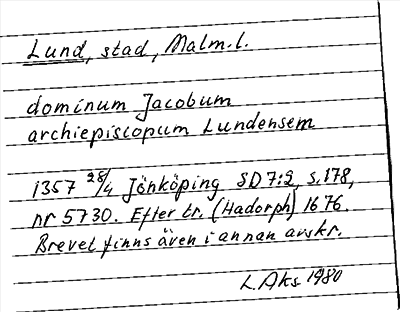 Lund, stad, Malm.l.
dominum Jacobum
archiepiscopum Lundensem
1357 28/4 Jönköping SD 7:2, s.178,
nr 5730. Efter tr. (Hadorph) 1676.
Brevet finns även i annan avskr.
L Aks 1980